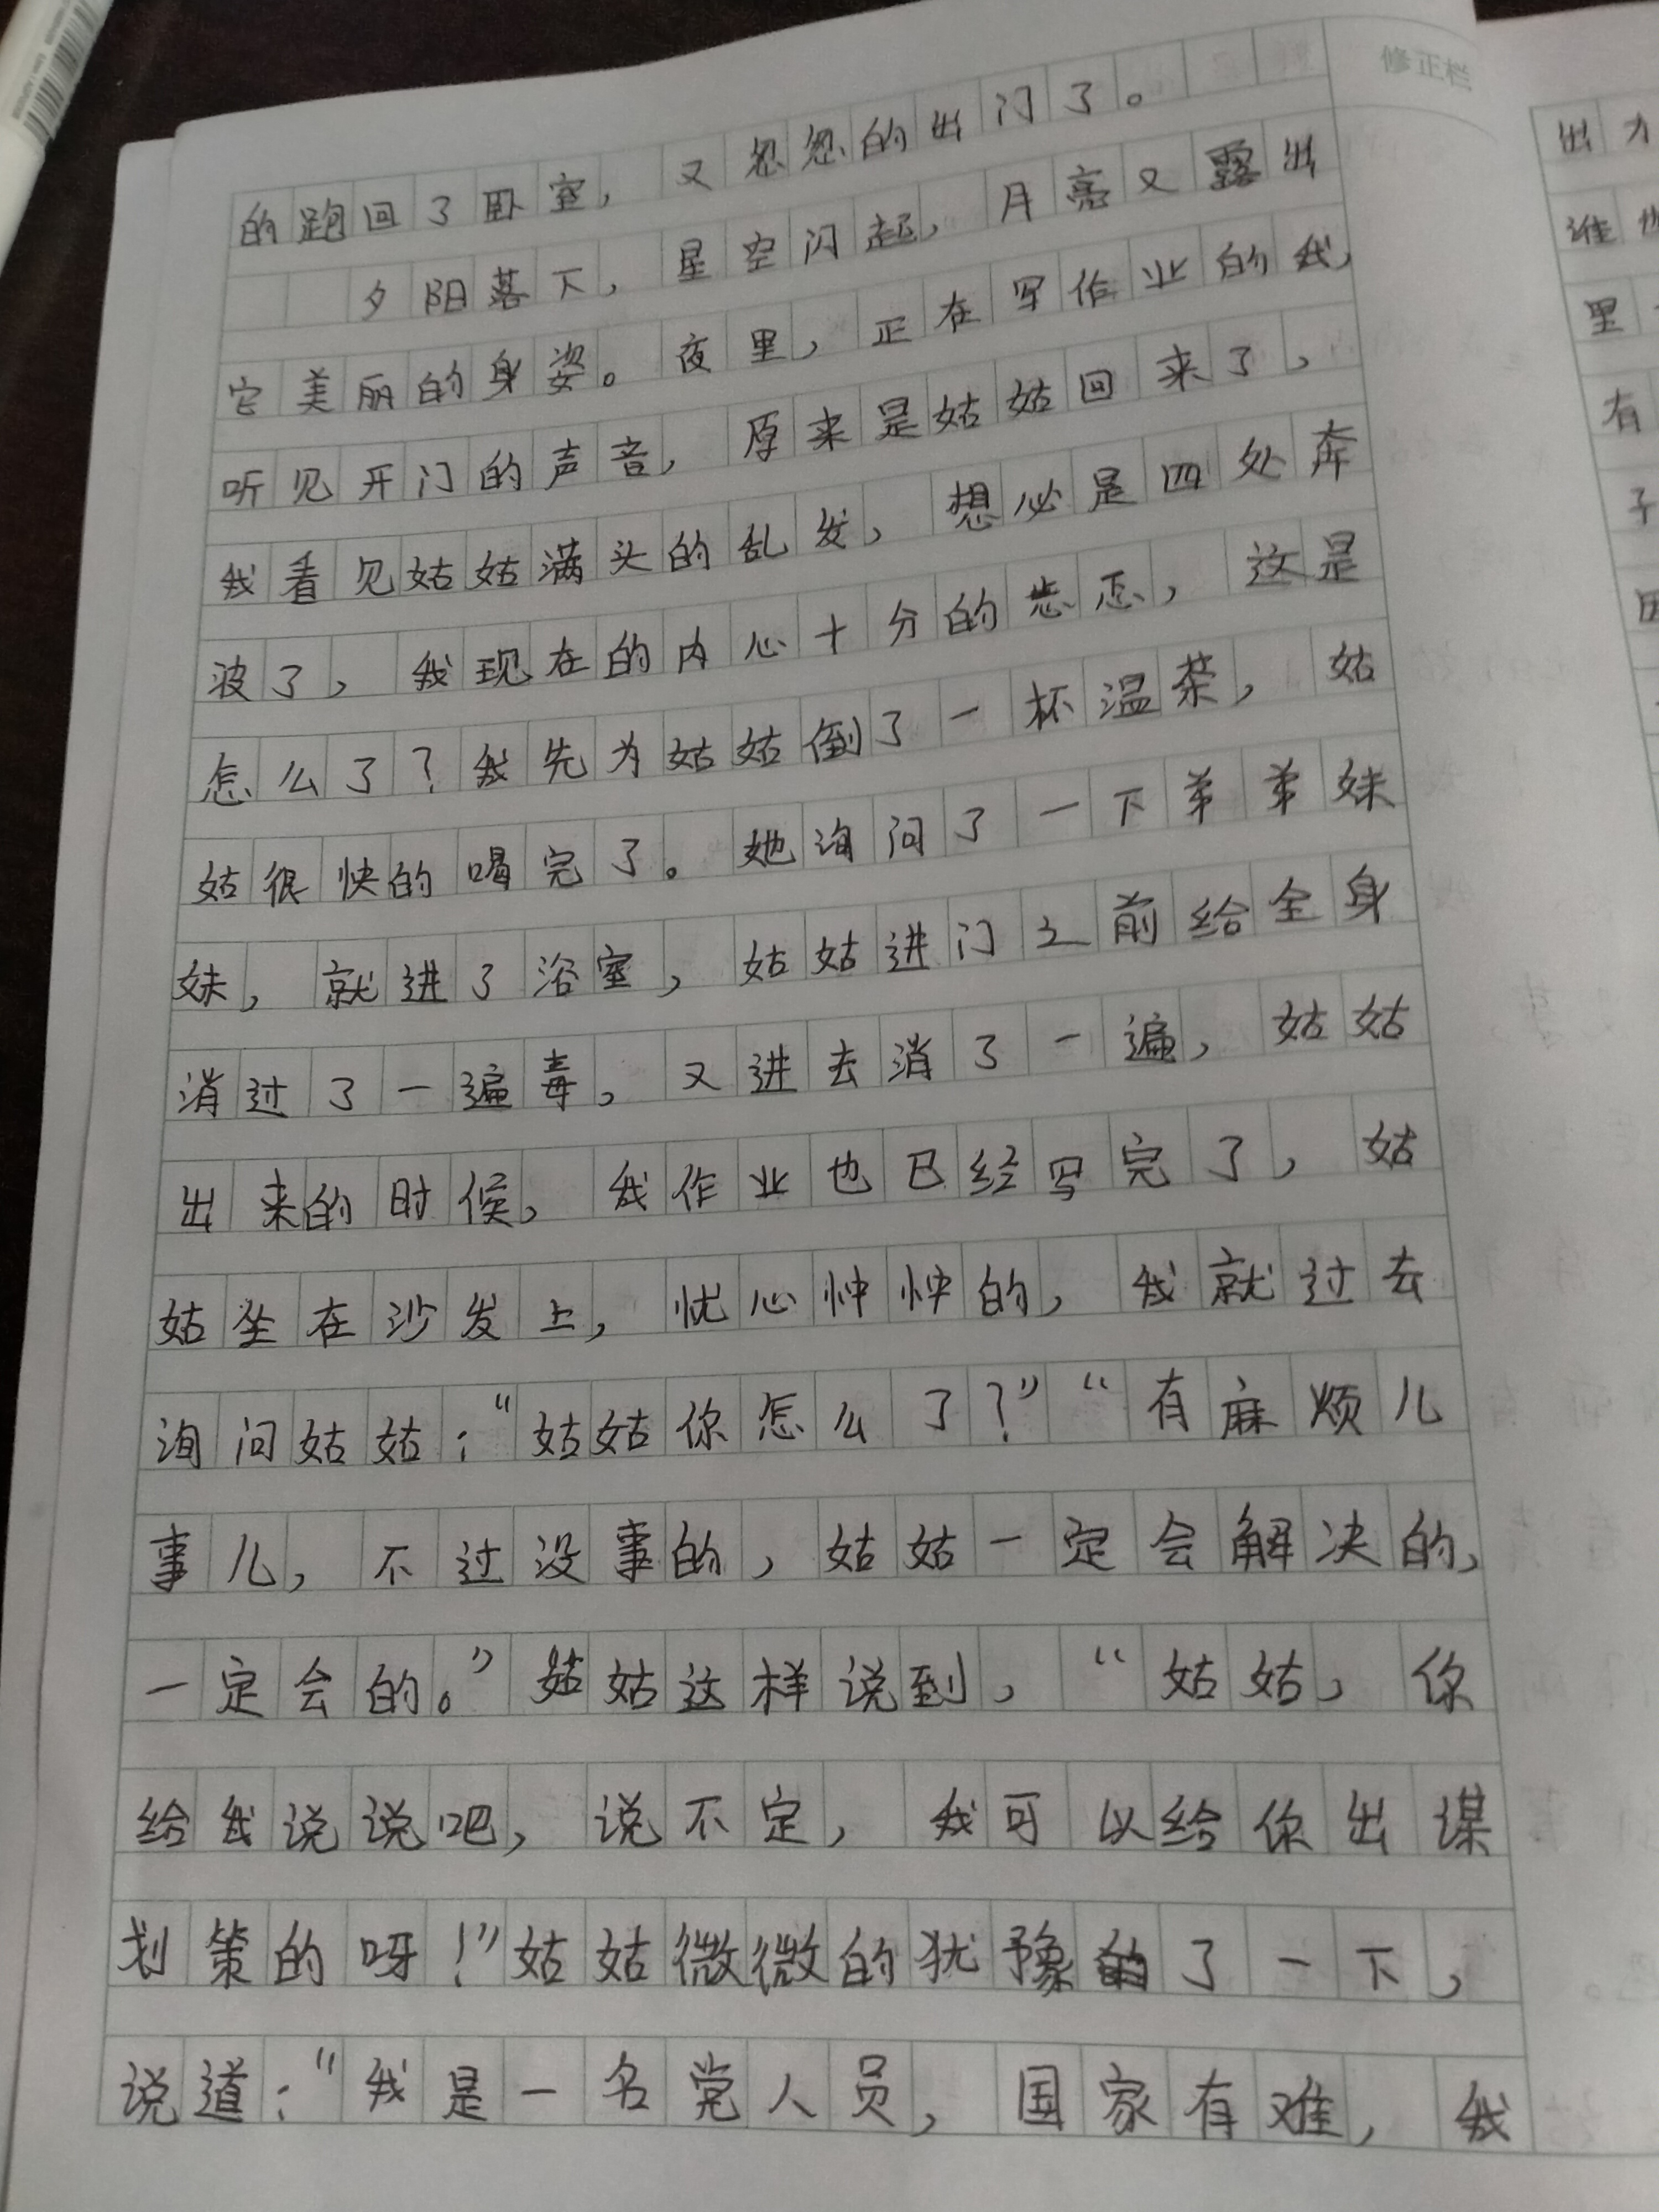 修正栏
的跑回了卧室，又忽忽的出门了。
夕阳落下，星空闪起，月亮又露出
它美丽的身姿。夜里，正在写作业的我，
听见开门的声音，原来是姑姑回来了，
我看见姑姑满头的乱发，想必是四处奔
波了，我现在的内心十分的忐忑，这是
怎么了？我先为姑姑倒了一杯温茶，姑
姑很快的喝完了。她询问了一下弟弟妹
妹，就进了浴室，姑姑进门之前给全身
消过了一遍毒，又进去消了一遍，姑姑
出来的时候，我作业也已经写完了，姑
姑坐在沙发上，忧心忡忡的，我就过去
询问姑姑：“姑姑你怎么了？”“有麻烦儿
事儿，不过没事的，姑姑一定会解决的，
一定会的。”姑姑这样说到，“姑姑，你
给我说说吧，说不定，我可以给你出谋
划策的呀！”姑姑微微的犹豫了一下，
说道：“我是一名党人员，国家有难，我
出
谁
里
有
子